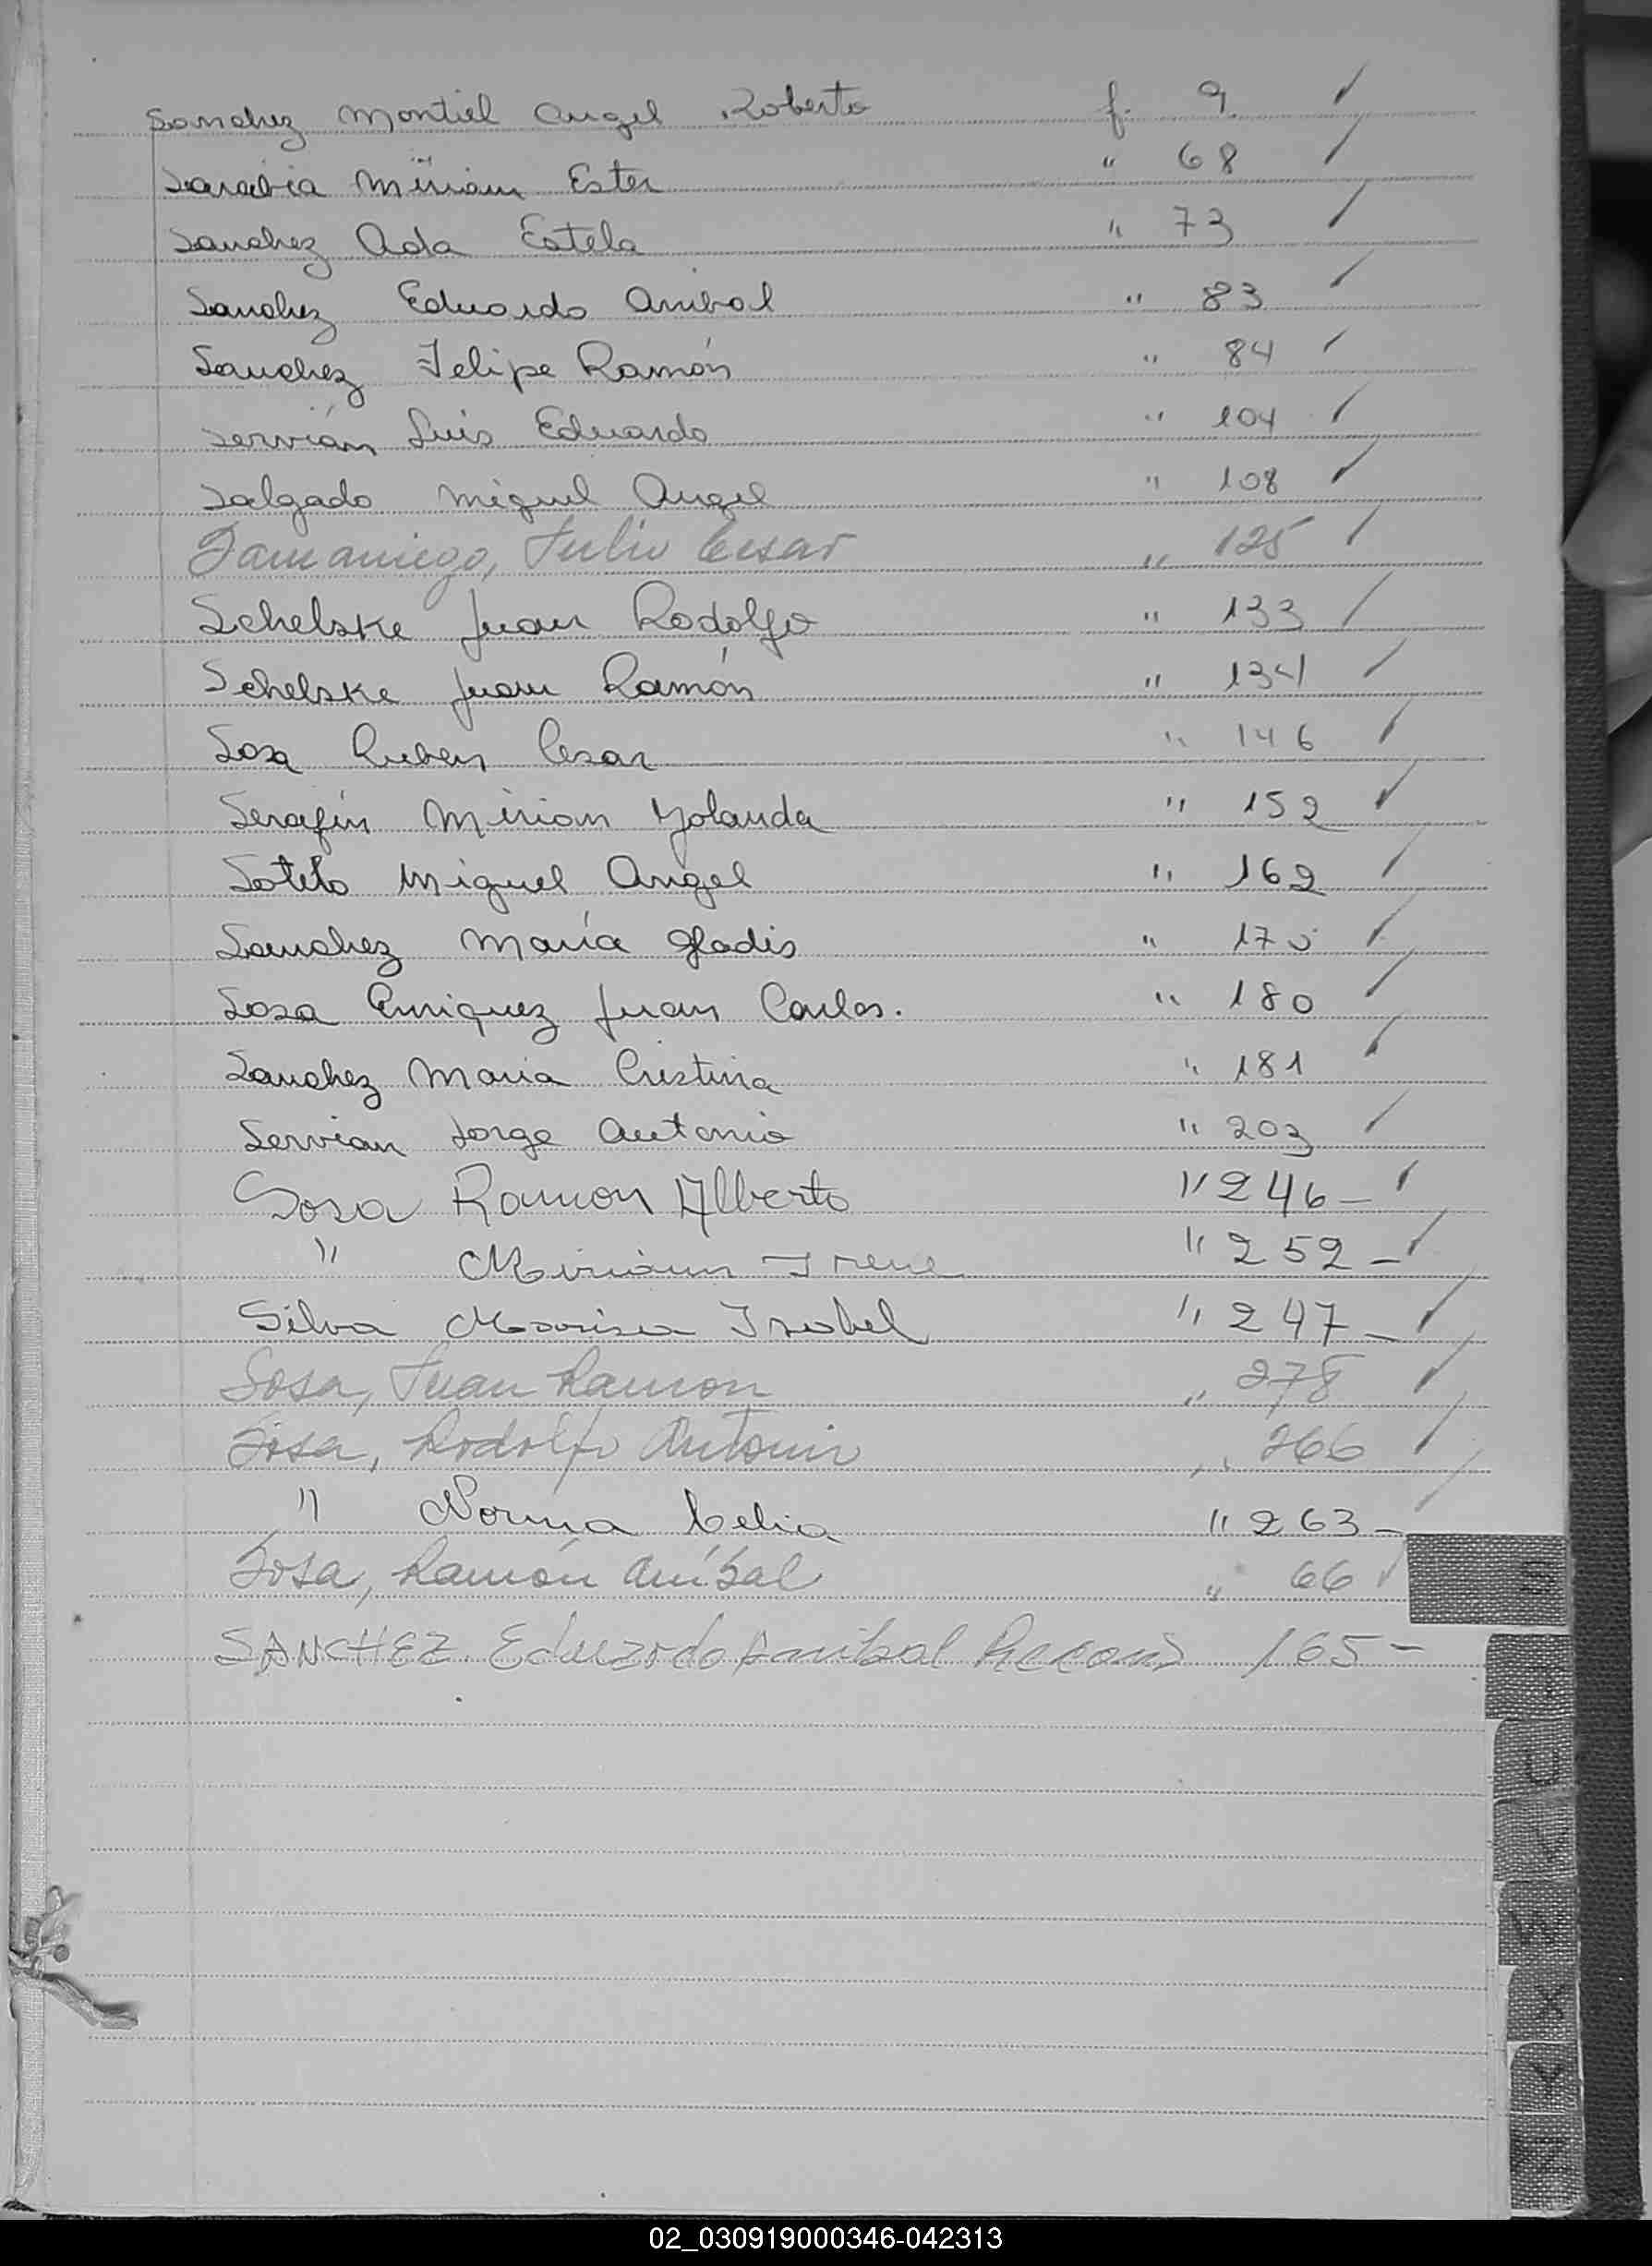 Sanchez Montiel Angel Roberto f. 9 ✓
Sarabia Miriam Ester " 68 ✓
Sanchez Ada Estela " 73 ✓
Sanchez Eduardo Anibal " 83 ✓
Sanchez Felipe Ramón " 84 ✓
Servián Luis Eduardo " 104 ✓
Salgado Miguel Angel " 108 ✓
Samaniego, Julio Cesar " 125 ✓
Schelske Juan Rodolfo " 133 ✓
Schelske Juan Ramón " 134 ✓
Sosa Ruben Cesar " 146 ✓
Serafín Mirian Yolanda " 152 ✓
Sotelo Miguel Angel " 162 ✓
Sanchez María Gladis " ✓
Sosa Enriquez Juan Carlos. " 180 ✓
Sanchez Maria Cristina " 181 ✓
Servian Jorge Antonio " 203 ✓
Sosa Ramon Alberto " 246 - ✓
" Miriam Irene " 252 - ✓
Silva Marisa Isabel " 247 - ✓
Sosa, Juan Ramon " 278 ✓
Sosa, Rodolfo Antonio " 266 ✓
" Norma Celia " 263 - ✓
Sosa, Ramón Aníbal " 66 ✓
SANCHEZ Eduardo Anibal 165 -
S
T
U
V
W
X
Y
Z
02_030919000346-042313